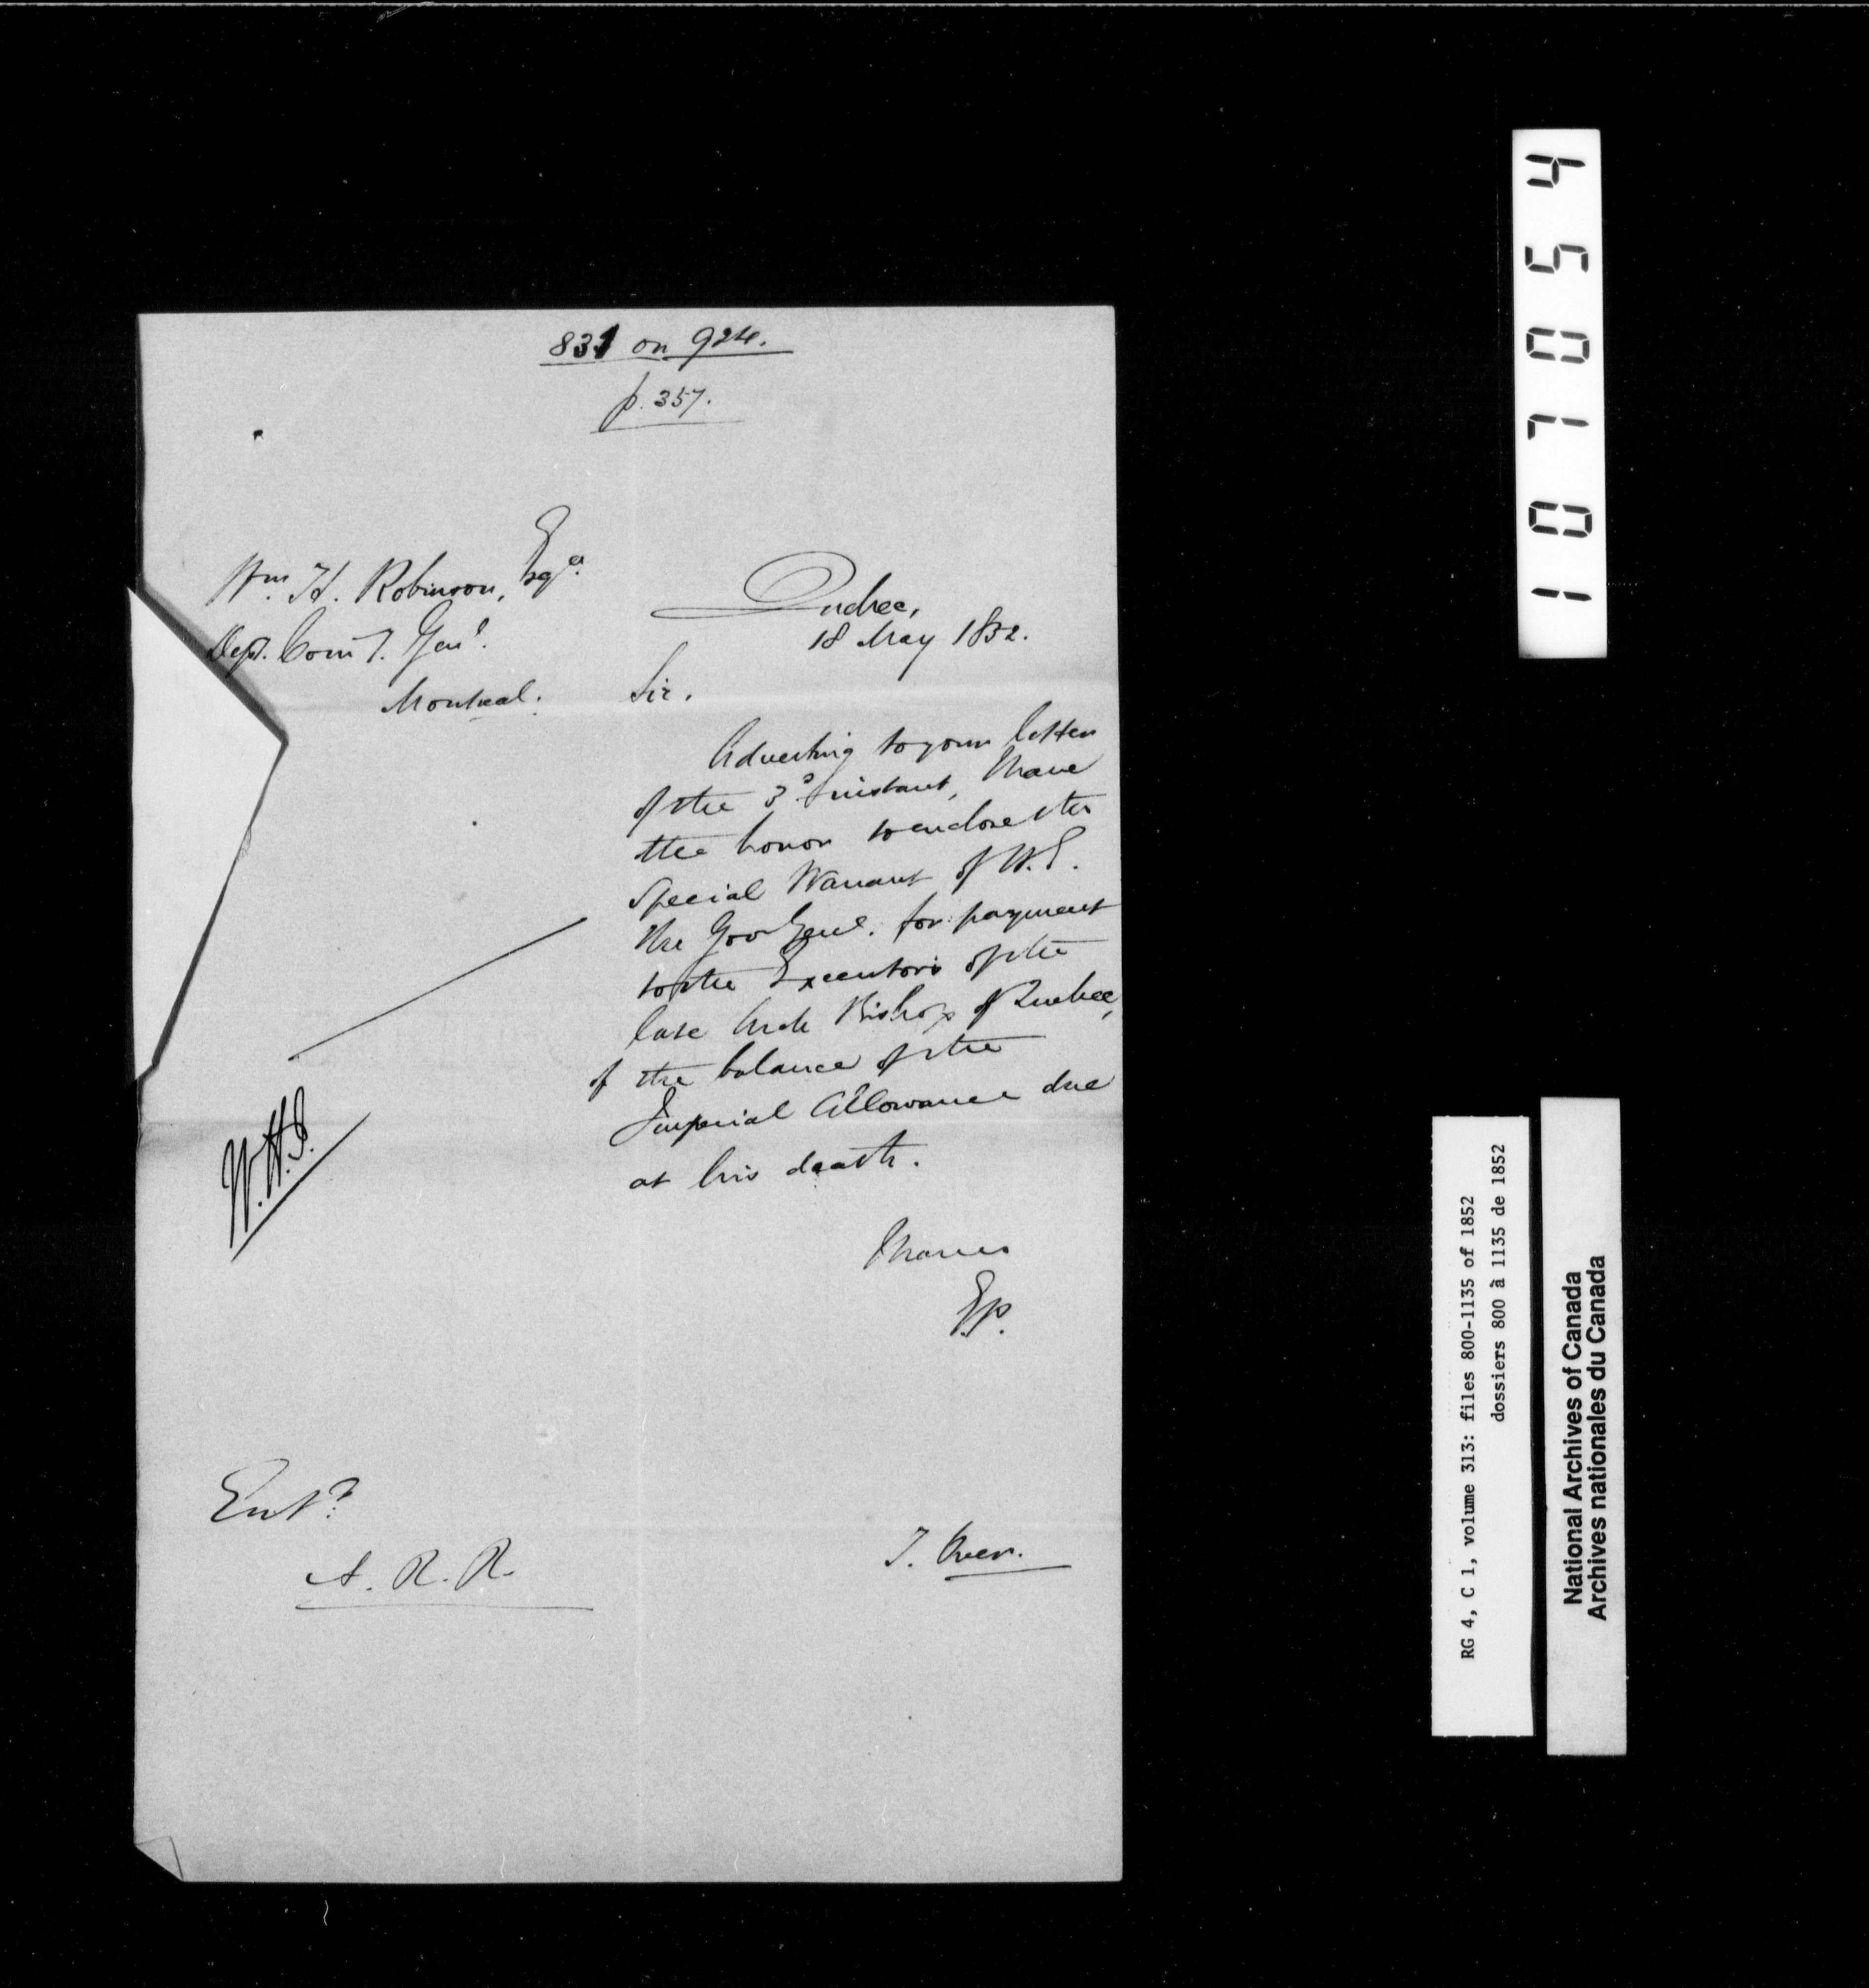 831 on 924.
p. 357.
Wm. H. Robinson, Esqr.
Dep. Com. Genl.
Montreal.
Quebec,
18 May 1852.
Sir,
Adverting to your letter
of the 3d instant, I have
the honor to enclose the
Special Warrant of H.E.
the Gov Genl. for payment
to the Executors of the
late Arch Bishop of Quebec,
of the balance of the
Imperial Allowance due
at his death.
I have
E.P.
Entd.
A. R. R.
107054
RG 4, C 1, volume 313: files 800-1135 of 1852
dossiers 800 à 1135 de 1852
National Archives of Canada
Archives nationales du Canada